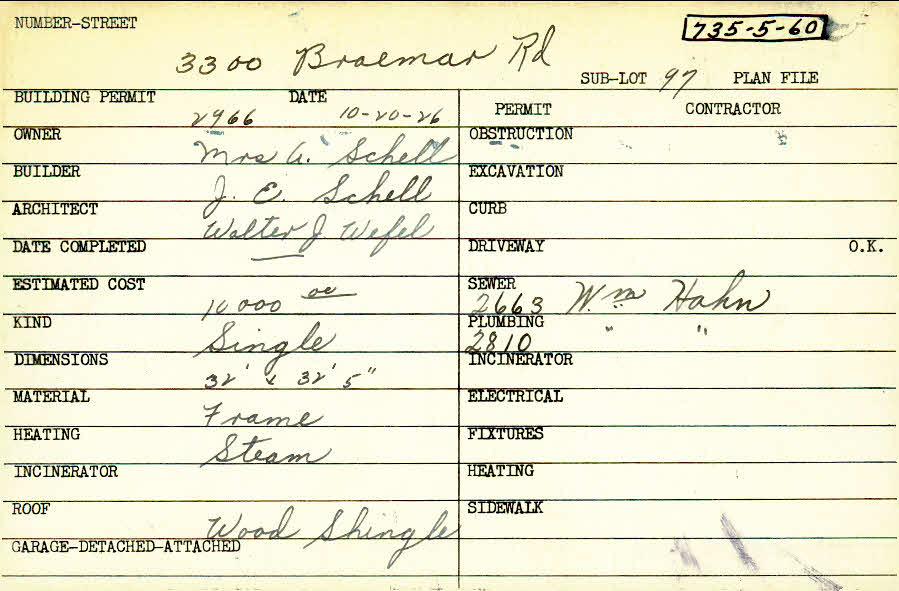 NUMBER-STREET
735-5-60
3300 Braemar Rd
SUB-LOT 97 PLAN FILE
BUILDING PERMIT 2966 DATE 10-20-26
PERMIT CONTRACTOR
OWNER Mrs A. Schell
OBSTRUCTION
BUILDER J. E. Schell
EXCAVATION
ARCHITECT Walter J. Wefel
CURB
DATE COMPLETED
DRIVEWAY O.K.
ESTIMATED COST 10000 00
SEWER 2663 Wm Hahn
KIND Single
PLUMBING 2810 " "
DIMENSIONS 32' x 32' 5"
INCINERATOR
MATERIAL Frame
ELECTRICAL
HEATING Steam
FIXTURES
INCINERATOR
HEATING
ROOF Wood Shingle
SIDEWALK
GARAGE-DETACHED-ATTACHED